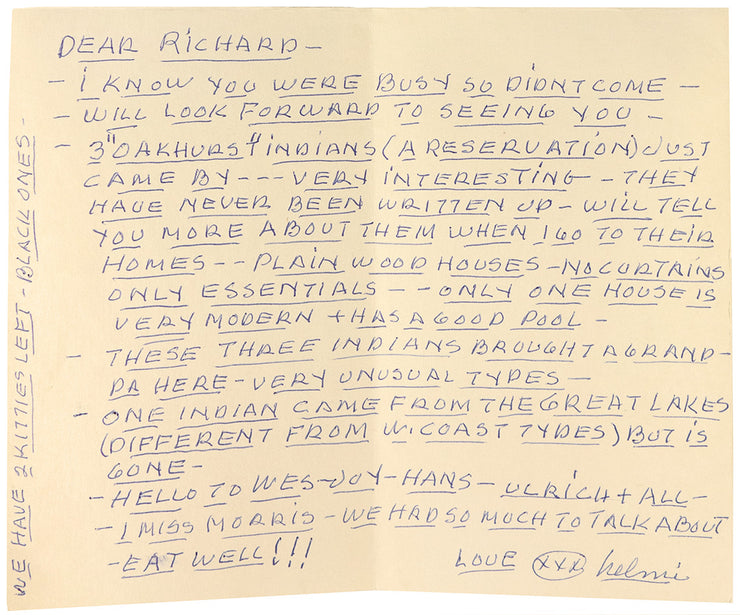 DEAR RICHARD -
- I KNOW YOU WERE BUSY SO DIDNT COME -
- WILL LOOK FORWARD TO SEEING YOU -
- 3 "OAKHURST" INDIANS (A RESERVATION) JUST
CAME BY --- VERY INTERESTING - THEY
HAVE NEVER BEEN WRITTEN UP - WILL TELL
YOU MORE ABOUT THEM WHEN I GO TO THEIR
HOMES -- PLAIN WOOD HOUSES - NO CURTAINS
ONLY ESSENTIALS -- ONLY ONE HOUSE IS
VERY MODERN + HAS A GOOD POOL -
- THESE THREE INDIANS BROUGHT A GRAND-
PA HERE - VERY UNUSUAL TYPES -
- ONE INDIAN CAME FROM THE GREAT LAKES
(DIFFERENT FROM W. COAST TYPES) BUT IS
GONE -
- HELLO TO WES - JOY - HANS - ULRICH + ALL -
- I MISS MORRIS - WE HAD SO MUCH TO TALK ABOUT
- EAT WELL!!!
LOVE XXX Helmi
WE HAVE 2 KITTIES LEFT - BLACK ONES -